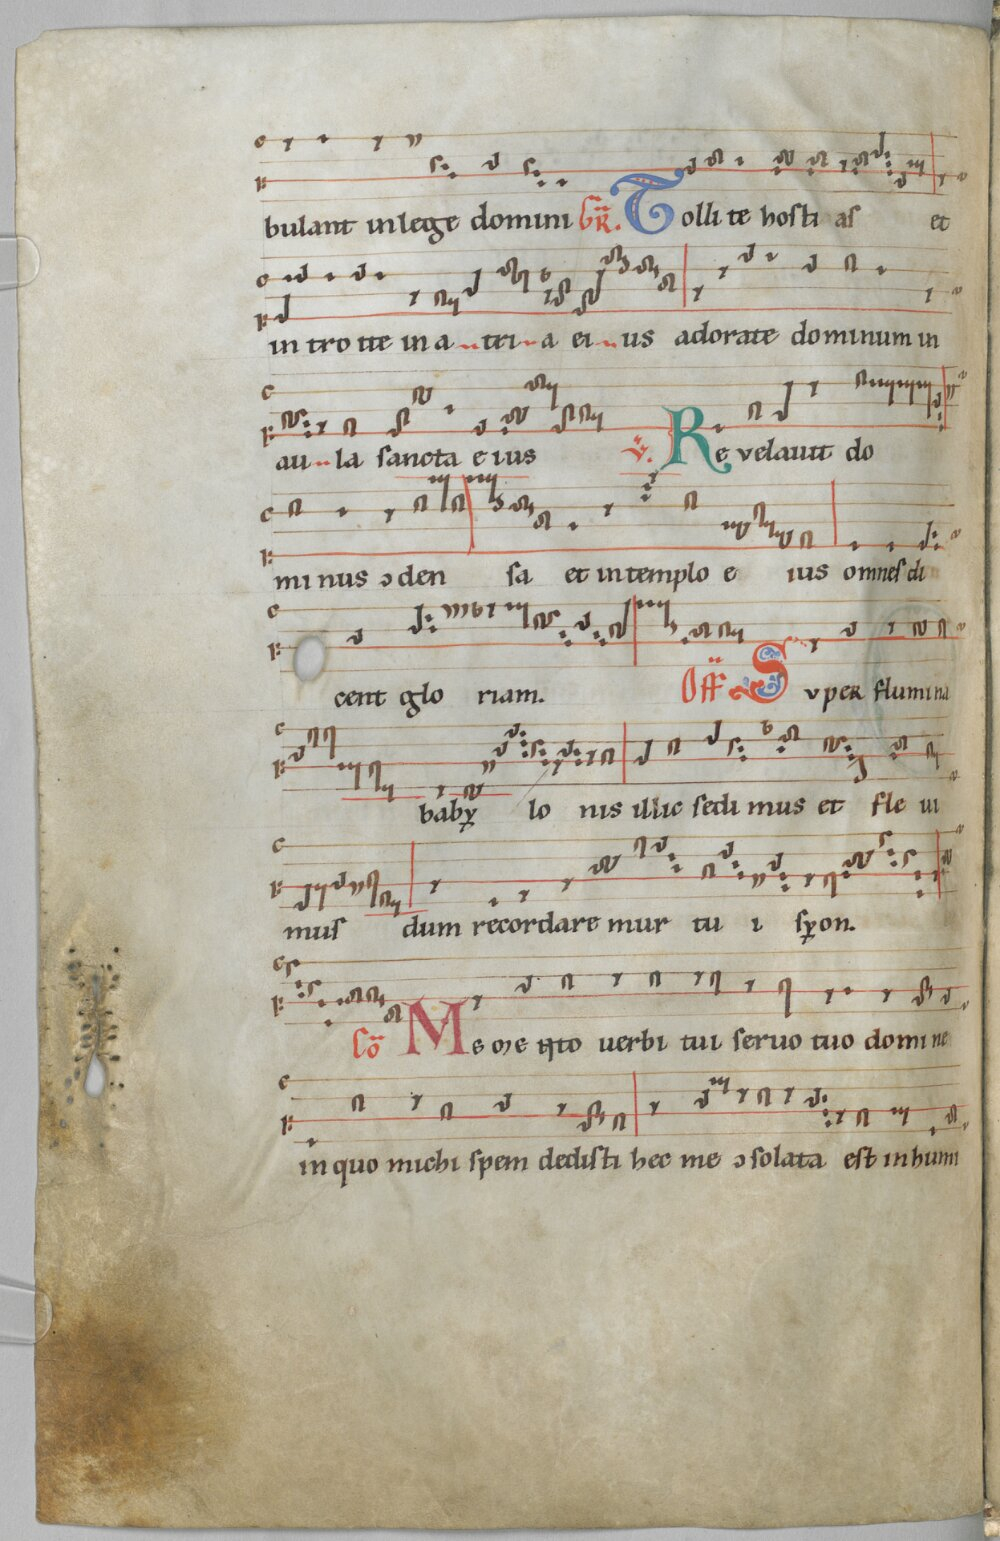 bulant in lege domini GR. Tolli te hosti as et
in tro ite in a tri a ei us adorate dominum in
au la sancta e ius V. Re velauit do
mi nus ɔden sa et in templo e ius omnes di
cent glo riam. Off Super flumina
baby lo nis illic sedi mus et fle ui
mus dum recordare mur tu i syon.
Cō Memento uerbi tui seruo tuo domine
in quo michi spem dedisti hec me ɔsolata est in humi